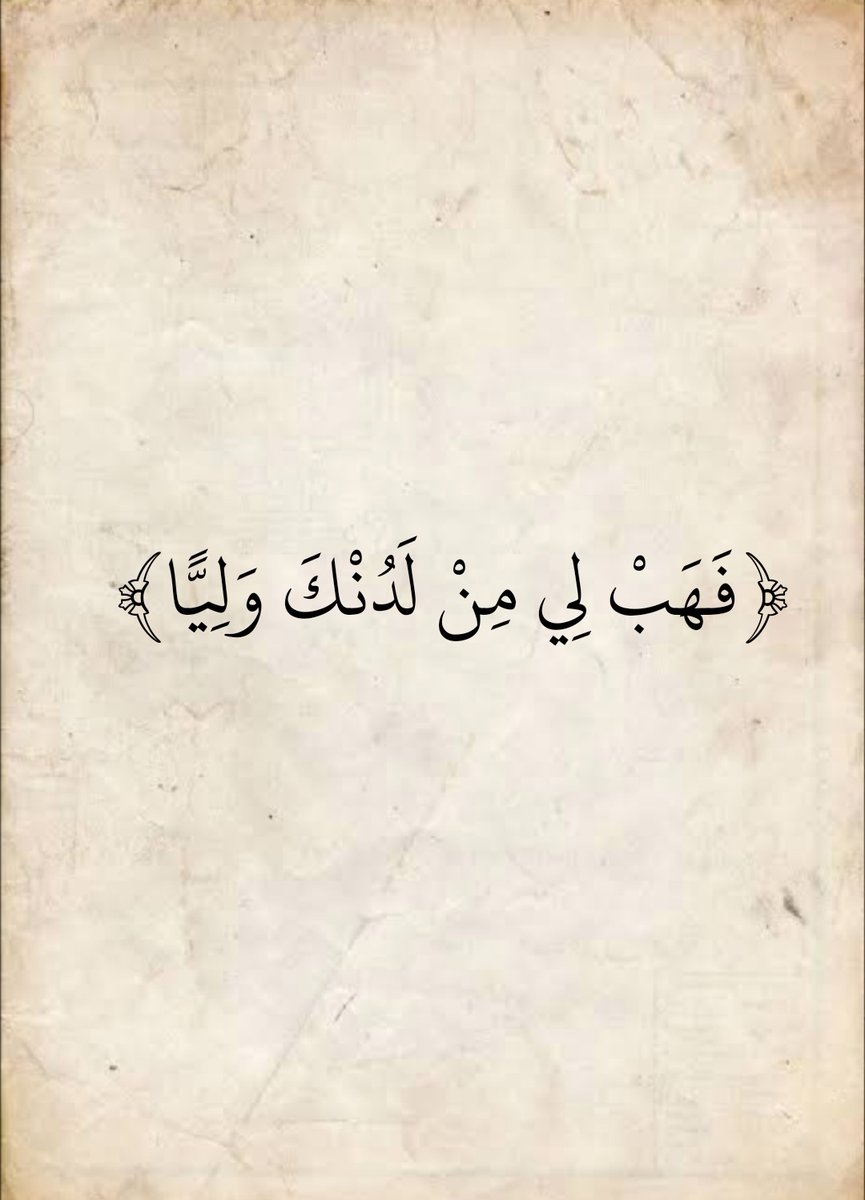 ﴿فَهَبْ لِي مِنْ لَدُنْكَ وَلِيًّا﴾